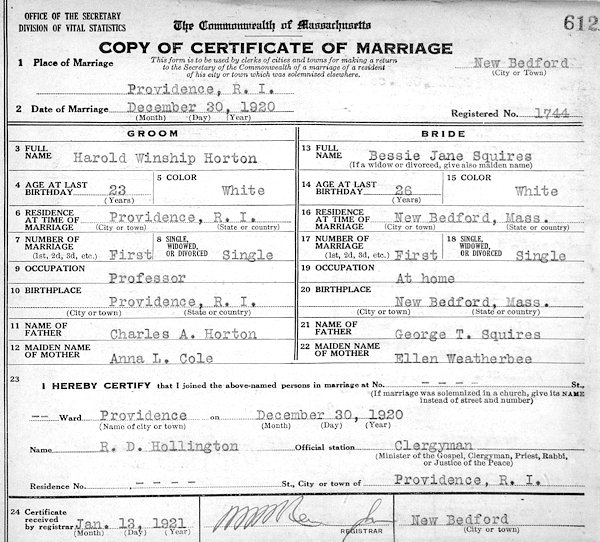 OFFICE OF THE SECRETARY
DIVISION OF VITAL STATISTICS
The Commonwealth of Massachusetts
612
COPY OF CERTIFICATE OF MARRIAGE
1 Place of Marriage
This form is to be used by clerks of cities and towns for making a return
to the Secretary of the Commonwealth of a marriage of a resident
of his city or town which was solemnized elsewhere.
New Bedford
(City or Town)
Providence, R. I.
2 Date of Marriage December 30, 1920
(Month) (Day) (Year)
Registered No. 1744
GROOM
3 FULL NAME Harold Winship Horton
4 AGE AT LAST BIRTHDAY 23
(Years)
5 COLOR White
6 RESIDENCE AT TIME OF MARRIAGE Providence, R. I.
(City or town) (State or country)
7 NUMBER OF MARRIAGE First
(1st, 2d, 3d, etc.)
8 SINGLE, WIDOWED, OR DIVORCED Single
9 OCCUPATION
Professor
10 BIRTHPLACE
Providence, R. I.
(City or town) (State or country)
11 NAME OF FATHER Charles A. Horton
12 MAIDEN NAME OF MOTHER Anna L. Cole
BRIDE
13 FULL NAME Bessie Jane Squires
(If a widow or divorced, give also maiden name)
14 AGE AT LAST BIRTHDAY 26
(Years)
15 COLOR White
16 RESIDENCE AT TIME OF MARRIAGE New Bedford, Mass.
(City or town) (State or country)
17 NUMBER OF MARRIAGE First
(1st, 2d, 3d, etc.)
18 SINGLE, WIDOWED, OR DIVORCED Single
19 OCCUPATION
At home
20 BIRTHPLACE
New Bedford, Mass.
(City or town) (State or country)
21 NAME OF FATHER George T. Squires
22 MAIDEN NAME OF MOTHER Ellen Weatherbee
23
I HEREBY CERTIFY that I joined the above-named persons in marriage at No. - - - - St.,
(If marriage was solemnized in a church, give its NAME
instead of street and number)
-- Ward Providence on December 30, 1920
(Name of city or town) (Month) (Day) (Year)
Name R. D. Hollington Official station Clergyman
(Minister of the Gospel, Clergyman, Priest, Rabbi,
or Justice of the Peace)
Residence No. - - - - St., City or town of Providence, R. I.
24 Certificate
received
by registrar Jan. 13, 1921
(Month) (Day) (Year)
REGISTRAR
New Bedford
(City or town)